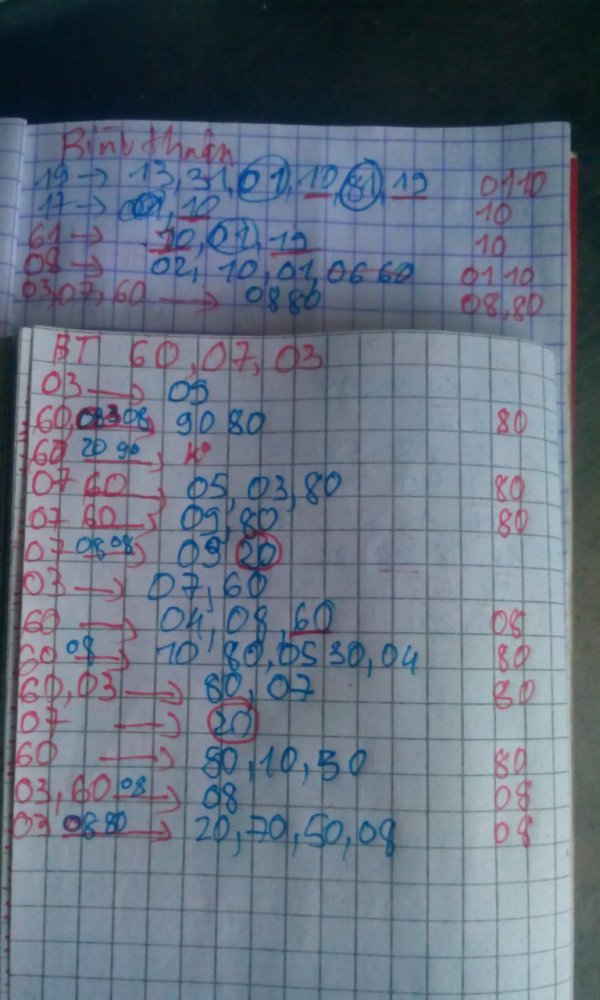 Bình thuận
19 → 13, 31, 01, 10, 81, 19 0110
17 → 01, 10 10
61 → 10, 01, 19 10
08 → 02, 10, 01, 06 60 01 10
03, 07, 60 → 0880 08, 80
BT 60, 07, 03
03 → 09
60, 08 → 90 80 80
60 20 90 →
07 60 → 05, 03, 80 80
07 60 → 09, 80 80
07 08 08 → 09 20
03 → 07, 60
60 → 04, 08, 60 08
60 08 → 10 80, 05 30, 04 80
60, 03 → 80, 07 80
07 → 20
60 → 80, 10, 50 80
03, 60 08 → 08 08
03 08 80 → 20, 70, 50, 08 08